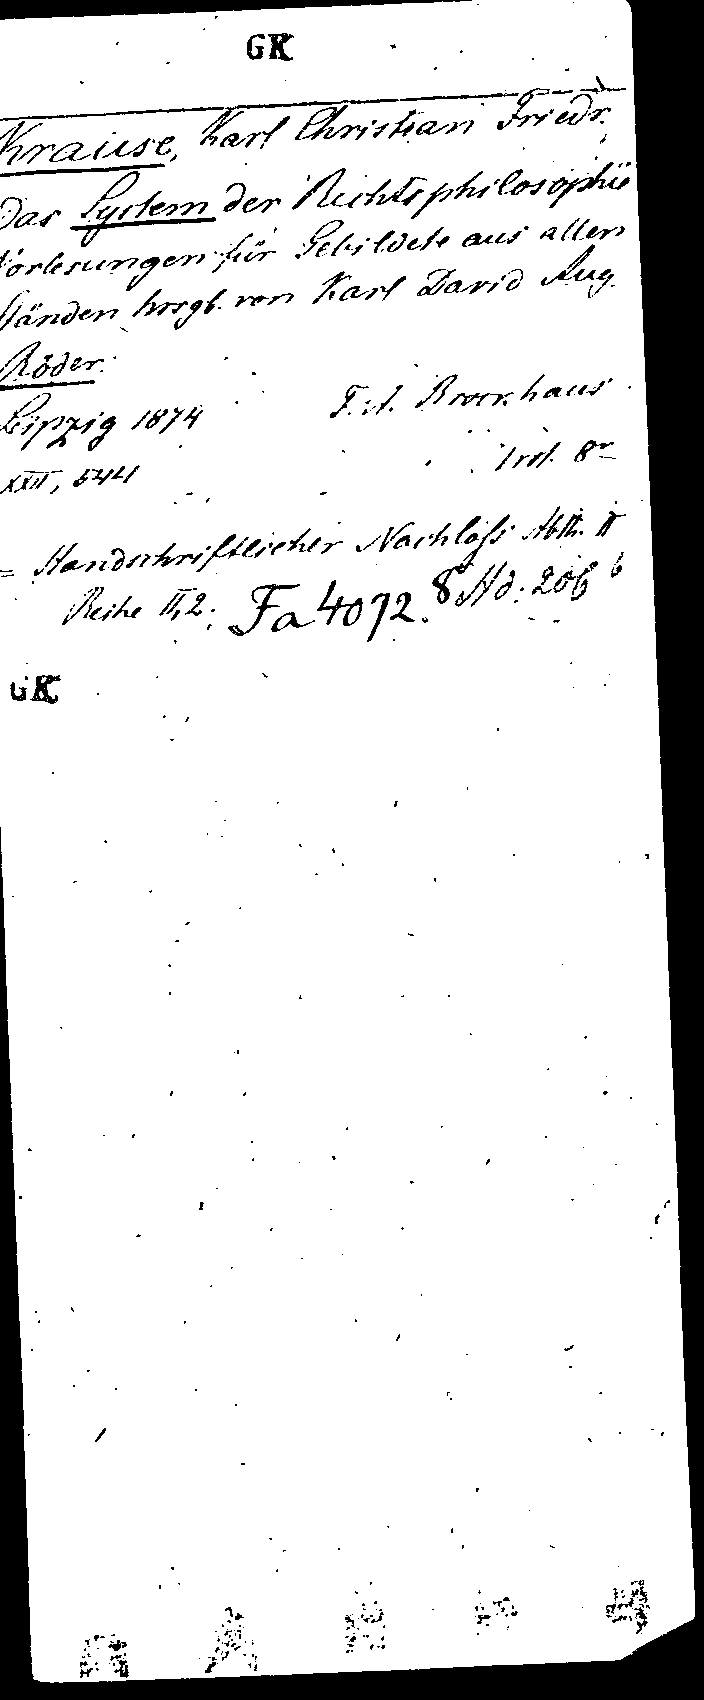 GK
Krause, Karl Christian Friedr.
Das System der Rechtsphilosophie
Vorlesungen für Gebildete aus allen
Ständen hrsgb. von Karl David Aug.
Röder.
Leipzig 1874 F. A. Brockhaus
XXII, 544 1 vol. 8°
= Handschriftlicher Nachlaß Abth. II
Reihe II, 2. Fa 4072. 8 Hd. 206 b
GK